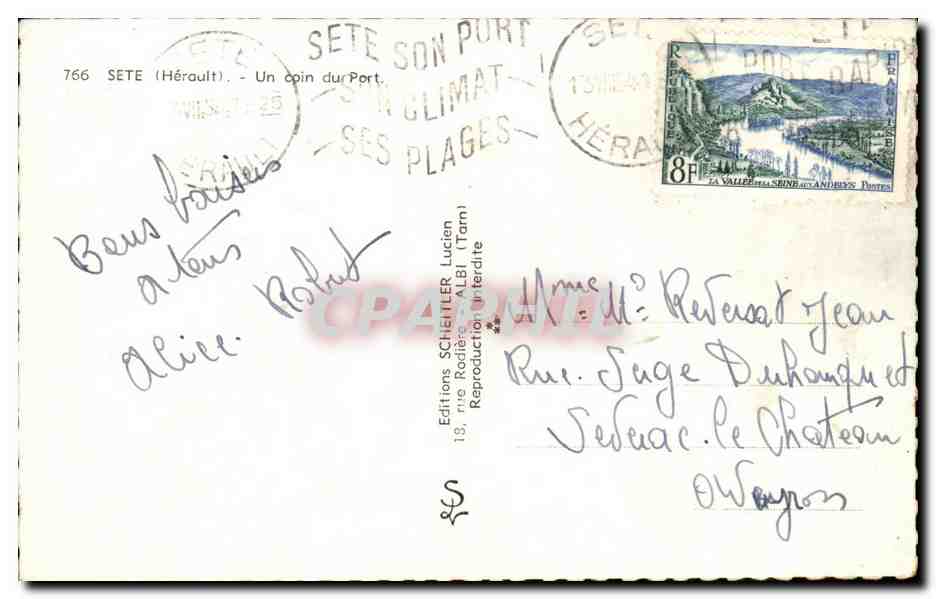 766 SETE (Hérault). - Un coin du Port.
SETE
HÉRAULT
SETE SON PORT
SON CLIMAT
SES PLAGES
HÉRAULT
REPUBLIQUE FRANÇAISE
8F
LA VALLEE DE LA SEINE AUX ANDELYS POSTES
Bons baisers
a tous
Alice. Robert
Editions SCHEITLER Lucien
18, rue Rodière - ALBI (Tarn)
Reproduction interdite
CPARAMA
Mme Mr Jean
Rue. Serge
Severac. le Chateau
Aveyron